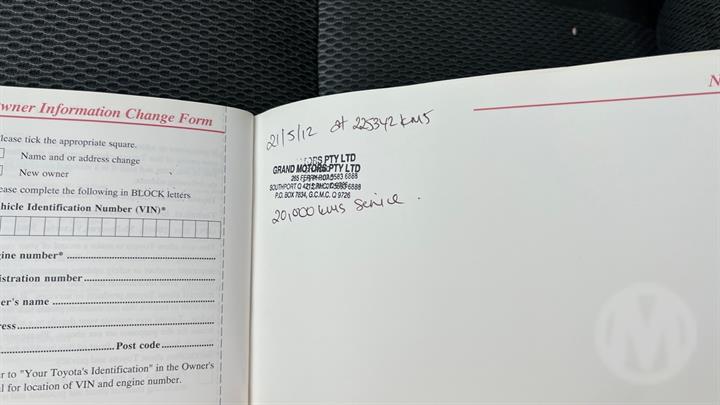 wner Information Change Form
lease tick the appropriate square.
Name and or address change
New owner
ease complete the following in BLOCK letters
hicle Identification Number (VIN)*
ine number*
istration number
er's name
ress
Post code
r to "Your Toyota's Identification" in the Owner's
l for location of VIN and engine number.
N
21/5/12 at 225342 kms
GRAND MOTORS PTY LTD
SOUTHPORT Q
P.O. BOX 7834, G.C.M.C. Q 9726
20,000 kms Service.
M